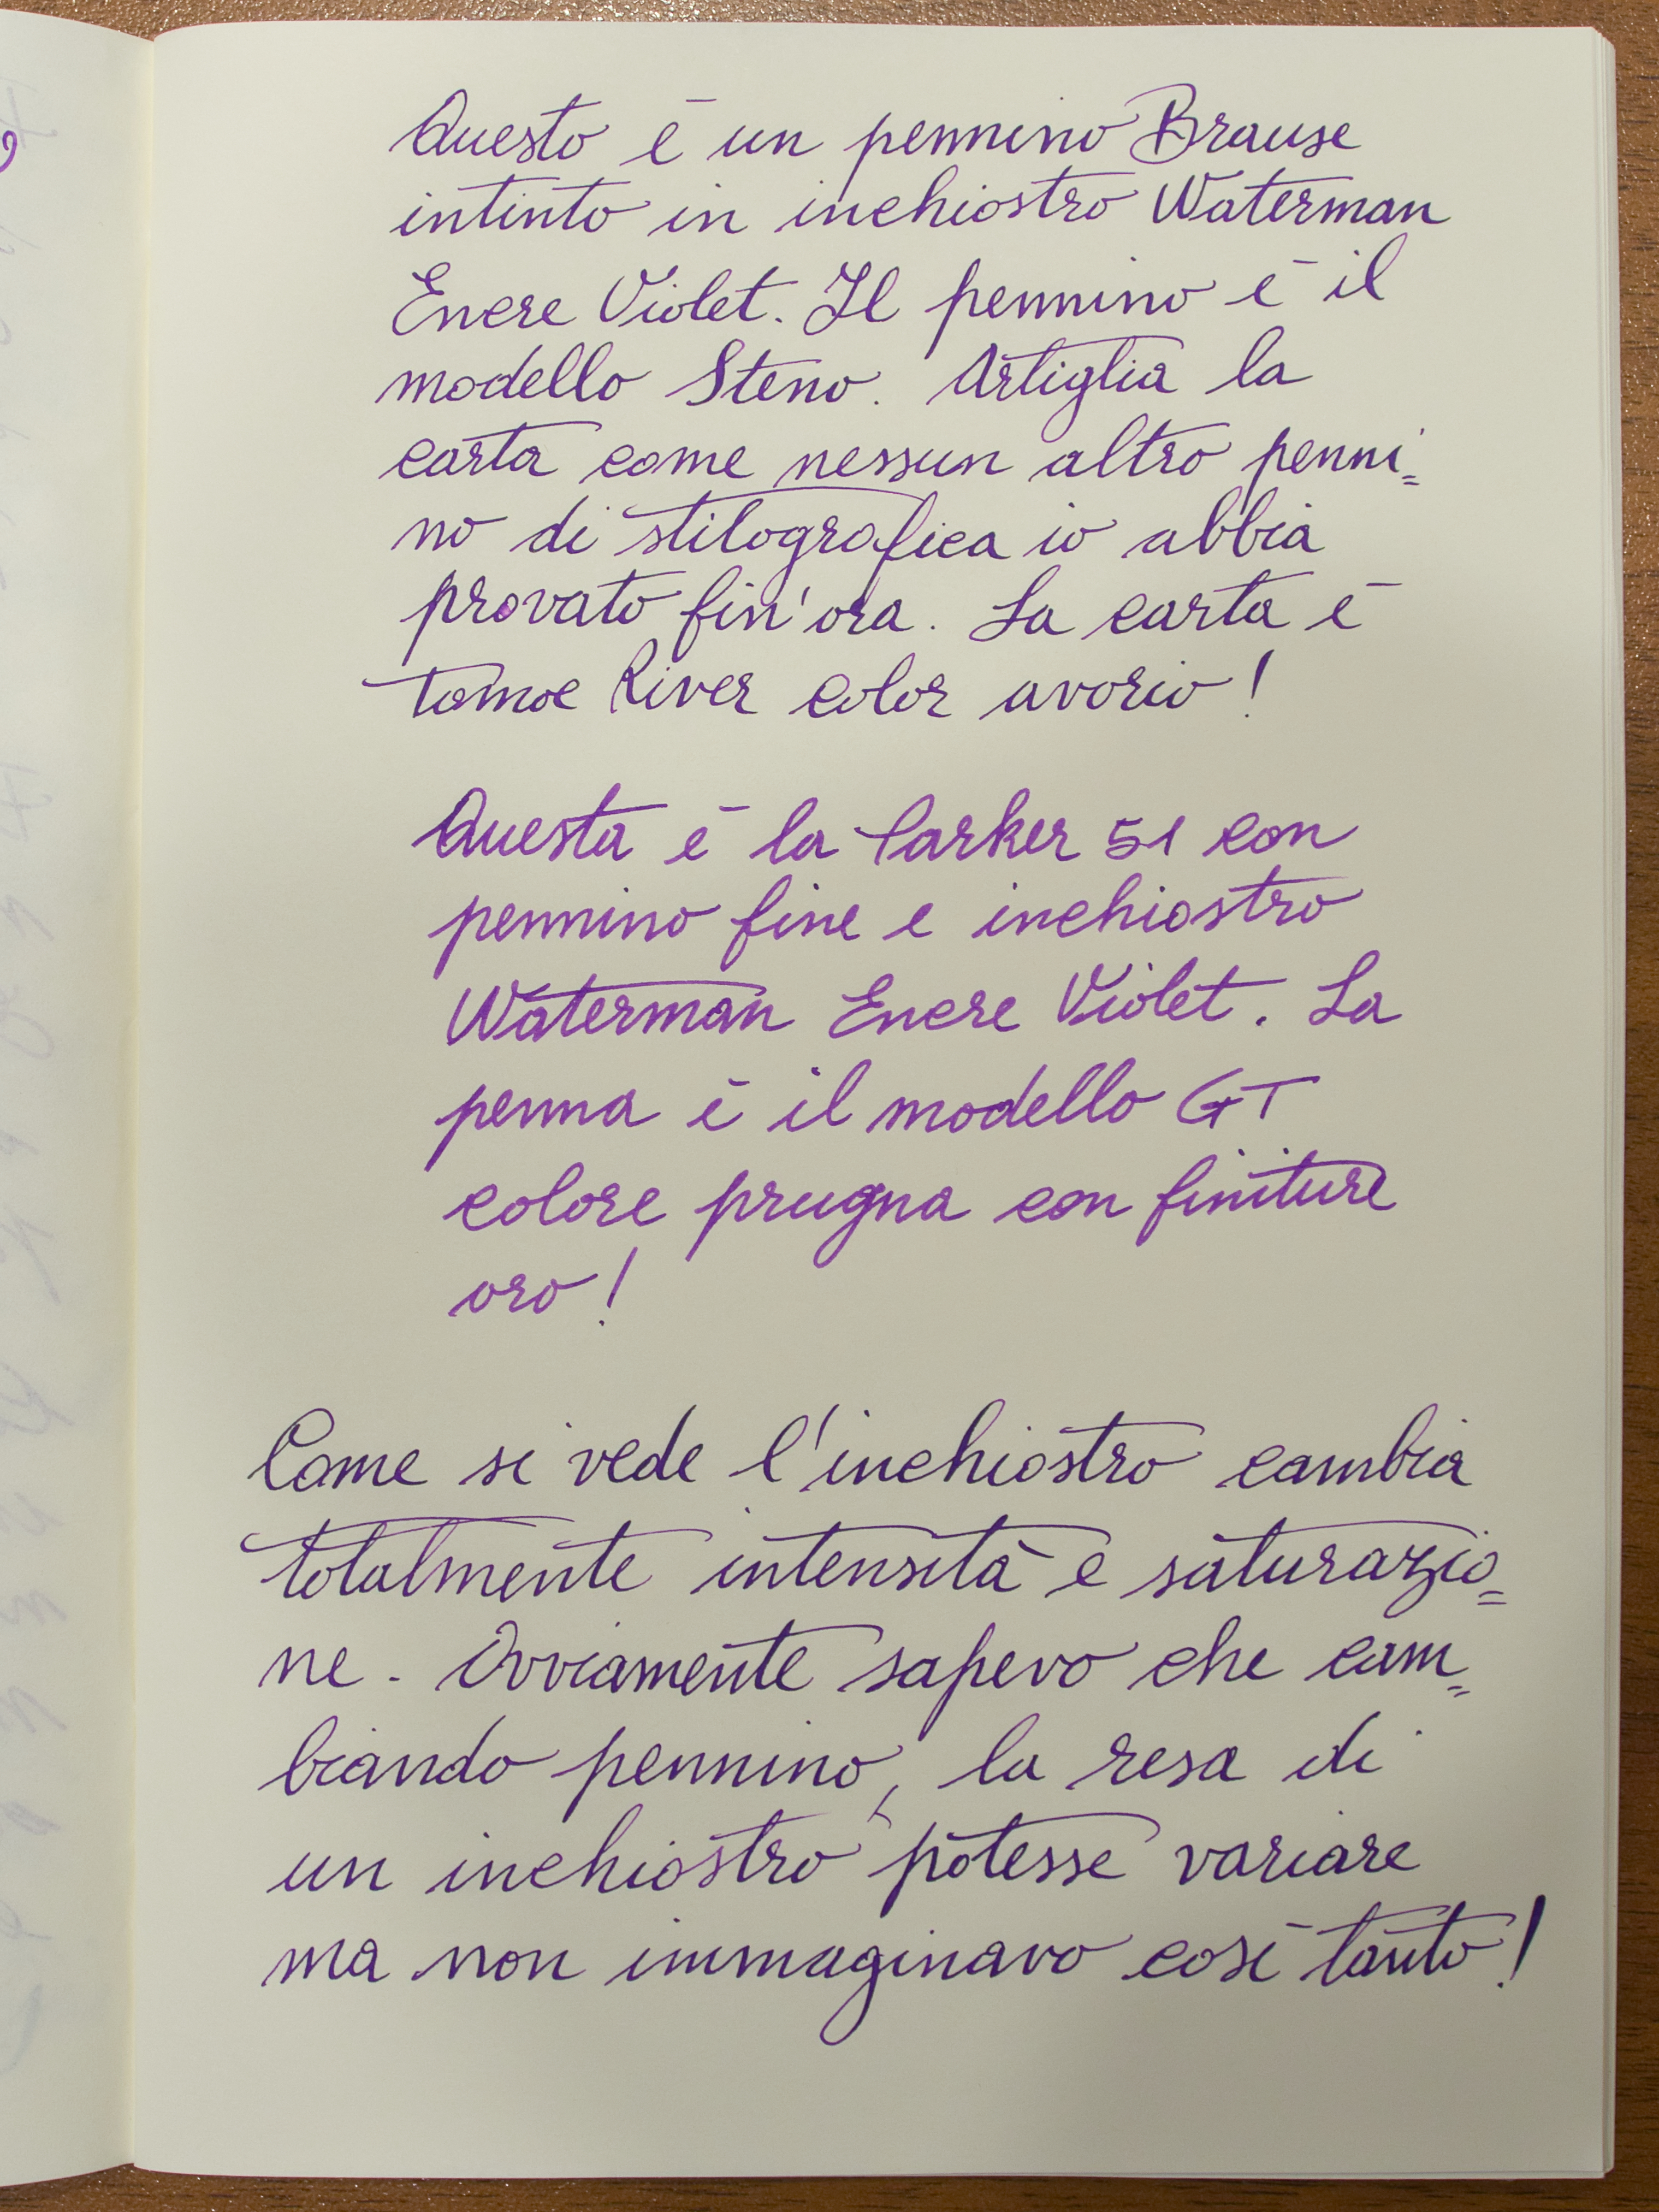 Questo è un pennino Brause
intinto in inchiostro Waterman
Encre Violet. Il pennino è il
modello Steno. Artiglia la
carta come nessun altro penni=
no di stilografica io abbia
provato fin'ora. La carta è
Tomoe River color avorio!
Questa è la Parker 51 con
pennino fine e inchiostro
Waterman Encre Violet. La
penna è il modello GT
colore prugna con finiture
oro!
Come si vede l'inchiostro cambia
totalmente intensità e saturazio=
ne. Ovviamente sapevo che cam=
biando pennino, la resa di
un inchiostro potesse variare
ma non immaginavo così tanto!